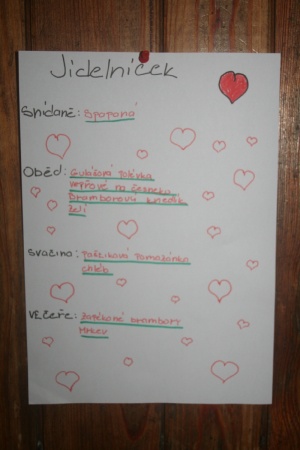 Jidelníček
Snídaně: Papaná
Oběd: Gulášová Polévka
vepřové na česneku
Bramborový knedlík
Zelí
Svačina: Pažitková Pomazánka
chléb
Večeře: Brambory
Mrkev